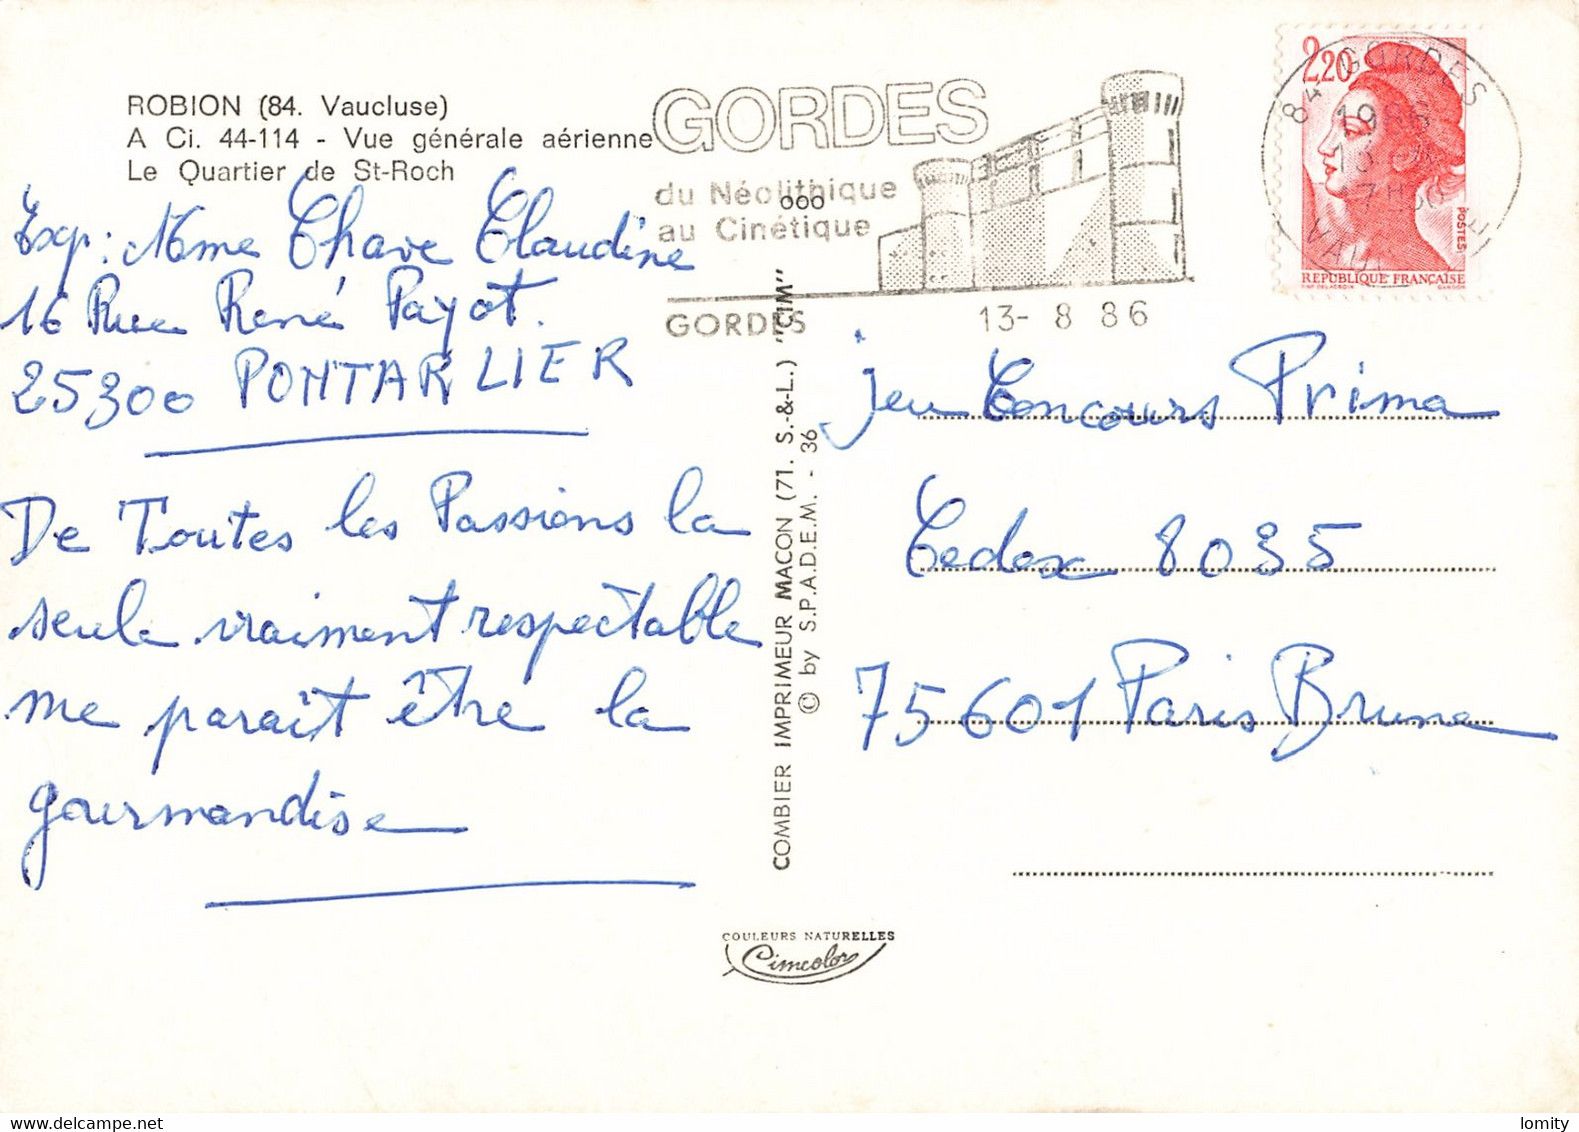 ROBION (84. Vaucluse)
A Ci. 44-114 - Vue générale aérienne
Le Quartier de St-Roch
Exp: Mme Chave Claudine
16 Rue René Payot.
25300 PONTARLIER
De Toutes les Passions la
seule vraiment respectable
me paraît être la
gourmandise
GORDES
du Néolithique
au Cinétique
GORDES
13- 8 86
ooo
COMBIER IMPRIMEUR MACON (71. S.-&-L.) "CIM"
© by S.P.A.D.E.M. - 36
2,20
POSTES
REPUBLIQUE FRANÇAISE
84 GORDES
jeu Concours Prima
Cedex 8035
75601 Paris Brune
COULEURS NATURELLES
Cimcolor
delcampe.net
lomity